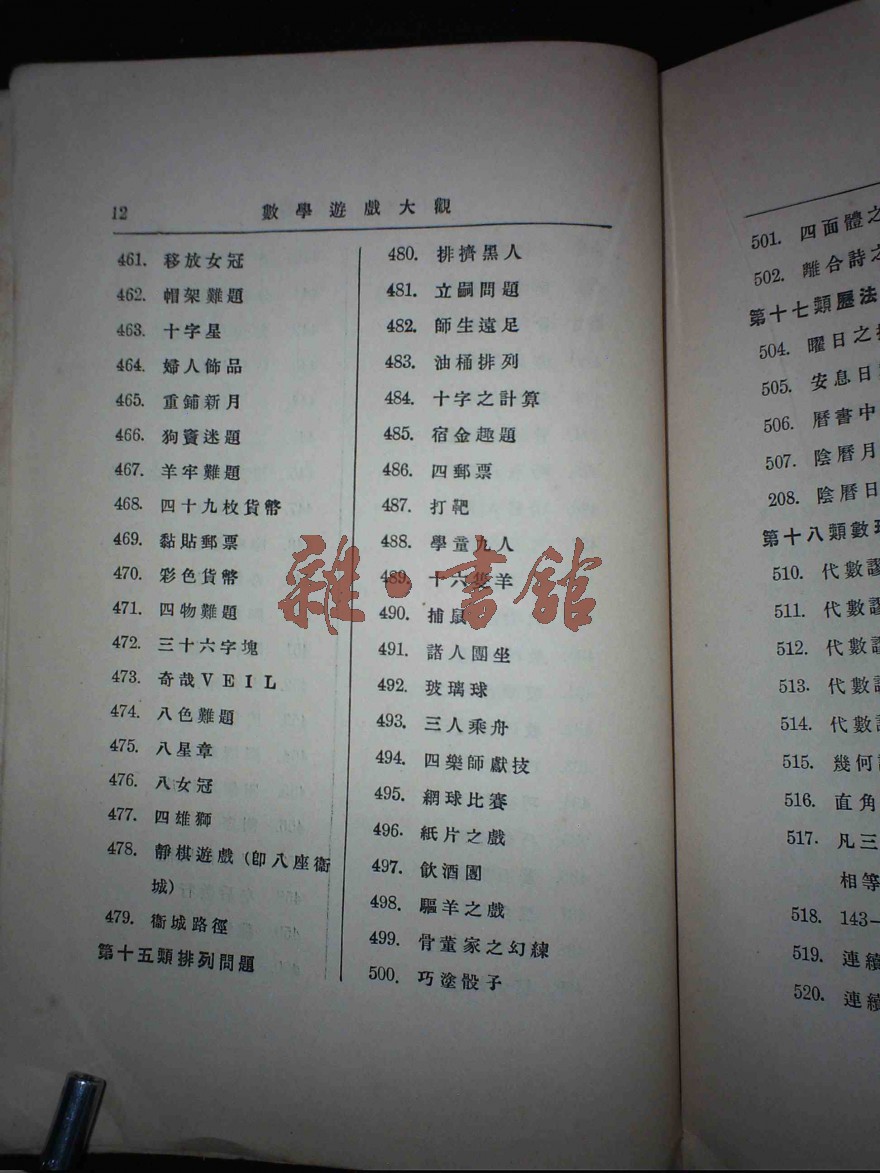 12
數學遊戲大觀
461. 移放女冠
462. 帽架難題
463. 十字星
464. 婦人飾品
465. 重鋪新月
466. 狗竇迷題
467. 羊牢難題
468. 四十九枚貨幣
469. 黏貼郵票
470. 彩色貨幣
471. 四物難題
472. 三十六字塊
473. 奇哉VEIL
474. 八色難題
475. 八星章
476. 八女冠
477. 四雄獅
478. 靜棋遊戲(卽八座衞
城)
479. 衞城路徑
第十五類排列問題
480. 排擠黑人
481. 立嗣問題
482. 師生遠足
483. 油桶排列
484. 十字之計算
485. 宿金趣題
486. 四郵票
487. 打靶
488. 學童九人
489. 十六隻羊
490. 捕鼠
491. 諸人團坐
492. 玻璃球
493. 三人乘舟
494. 四樂師獻技
495. 網球比賽
496. 紙片之戲
497. 飲酒團
498. 驅羊之戲
499. 骨董家之幻練
500. 巧塗骰子
雜·書館
501. 四面體之
502. 離合詩之
第十七類曆法
504. 曜日之
505. 安息日
506. 曆書中
507. 陰曆月
208. 陰曆日
第十八類數
510. 代數謬
511. 代數謬
512. 代數謬
513. 代數
514. 代數
515. 幾何
516. 直角
517. 凡三
相等
518. 143—
519. 連續
520. 連續